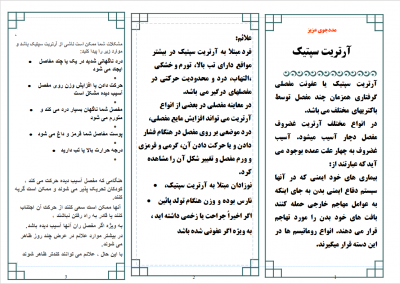 مددجوی عزیز
آرتریت سپتیک
آرتریت سپتیک یا عفونت مفصلی
گرفتاری همزمان چند مفصل توسط
باکتریهای مختلف می باشد.
در انواع مختلف آرتریت غضروف
مفصل دچار آسیب میشود. آسیب
غضروف به چهار علت عمده بوجود می
آید که عبارتند از:
بیماری های خود ایمنی که در آنها
سیستم دفاع ایمنی بدن به جای اینکه
به عوامل مهاجم خارجی حمله کنند
بافت های خود بدن را مورد تهاجم
قرار می دهند، انواع روماتیسم ها در
این دسته قرار میگیرند.
علائم:
فرد مبتلا به آرتریت سپتیک در بیشتر
مواقع دارای تب بالا، تورم و خشکی
،التهاب، درد و محدودیت حرکتی در
مفصلهای درگیر می باشد.
در معاینه مفصلی در بعضی از انواع
آرتریت می تواند افزایش مایع مفصلی،
درد موضعی بر روی مفصل در هنگام فشار
دادن و یا حرکت دادن آن، گرمی و قرمزی
و ورم مفصل و تغییر شکل آن را مشاهده
کرد.
نوزادان مبتلا به آرتریت سپتیک،
نارس بوده و وزن هنگام تولد پائین
اگر اخیراً جراحت یا زخمی داشته اید ،
به ویژه اگر عفونی شده باشد
2
مشکلات شما ممکن است ناشی از آرتریت سپتیک باشد و
موارد زیر را پیدا کنید:
درد ناگهانی شدید در یک یا چند مفاصل
ایجاد می شود
حرکت دادن یا افزایش وزن روی مفصل
آسیب دیده مشکل است
مفصل شما ناگهان بسیار درد می کند و
متورم می شود
پوست مفاصل شما قرمز و داغ می شود
درجه حرارت بالا یا تب دارید
هنگامی که مفصل آسیب دیده حرکت می کند ،
کودکان تحریک پذیر می شوند و ممکن است گریه
کنند.
آنها ممکن است سعی کنند از حرکت آن اجتناب
کنند یا قادر به راه رفتن نباشند .
به ویژه اگر مفصل ران آنها آسیب دیده باشد.
در بیشتر موارد علائم در عرض چند روز ظاهر
می شوند.
با این حال ، علائم می توانند کندتر ظاهر شوند
3